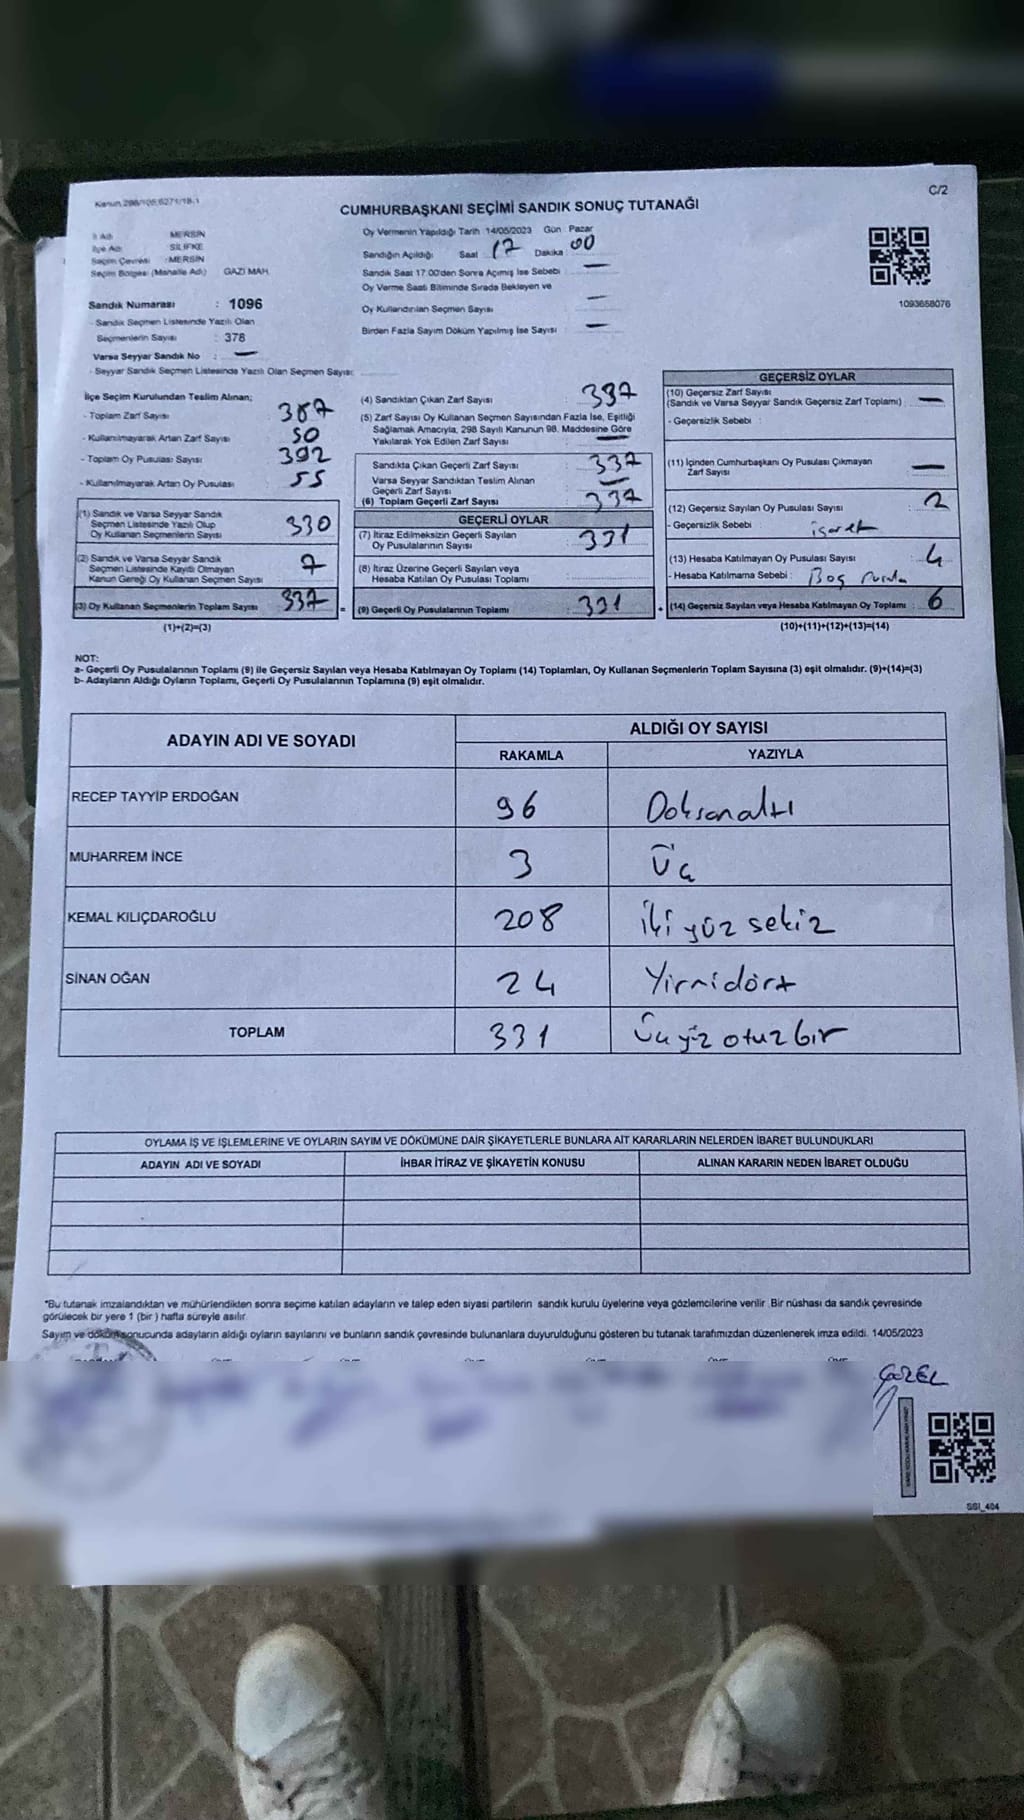 Kanun 298/105,6271/18-1
C/2
CUMHURBAŞKANI SEÇİMİ SANDIK SONUÇ TUTANAĞI
İl Adı MERSİN
İlçe Adı SİLİFKE
Seçim Çevresi : MERSİN
Seçim Bölgesi (Mahalle Adı) GAZİ MAH.
Sandık Numarası : 1096
- Sandık Seçmen Listesinde Yazılı Olan
Seçmenlerin Sayısı : 378
Varsa Seyyar Sandık No : —
- Seyyar Sandık Seçmen Listesinde Yazılı Olan Seçmen Sayısı:
Oy Vermenin Yapıldığı Tarih 14/05/2023 Gün Pazar
Sandığın Açıldığı Saat 17 Dakika 00
Sandık Saat 17.00'den Sonra Açımış İse Sebebi —
Oy Verme Saati Bitiminde Sırada Bekleyen ve
Oy Kullandırılan Seçmen Sayısı —
Birden Fazla Sayım Döküm Yapılmış İse Sayısı —
1093658076
İlçe Seçim Kurulundan Teslim Alınan;
- Toplam Zarf Sayısı 387
- Kullanılmayarak Artan Zarf Sayısı 50
- Toplam Oy Pusulası Sayısı 392
- Kullanılmayarak Artan Oy Pusulası 55
(1) Sandık ve Varsa Seyyar Sandık
Seçmen Listesinde Yazılı Olup
Oy Kullanan Seçmenlerin Sayısı 330
(2) Sandık ve Varsa Seyyar Sandık
Seçmen Listesinde Kayıtlı Olmayan
Kanun Gereği Oy Kullanan Seçmen Sayısı 7
(3) Oy Kullanan Seçmenlerin Toplam Sayısı 337 =
(1)+(2)=(3)
(4) Sandıktan Çıkan Zarf Sayısı 337
(5) Zarf Sayısı Oy Kullanan Seçmen Sayısından Fazla İse, Eşitliği
Sağlamak Amacıyla, 298 Sayılı Kanunun 98. Maddesine Göre
Yakılarak Yok Edilen Zarf Sayısı —
Sandıkta Çıkan Geçerli Zarf Sayısı 337
Varsa Seyyar Sandıktan Teslim Alınan
Geçerli Zarf Sayısı —
(6) Toplam Geçerli Zarf Sayısı 337
GEÇERLİ OYLAR
(7) İtiraz Edilmeksizin Geçerli Sayılan
Oy Pusulalarının Sayısı 331
(8) İtiraz Üzerine Geçerli Sayılan veya
Hesaba Katılan Oy Pusulaları Toplamı
(9) Geçerli Oy Pusulalarının Toplamı 331 +
GEÇERSİZ OYLAR
(10) Geçersiz Zarf Sayısı
(Sandık ve Varsa Seyyar Sandık Geçersiz Zarf Toplamı) : —
- Geçersizlik Sebebi :
(11) İçinden Cumhurbaşkanı Oy Pusulası Çıkmayan
Zarf Sayısı —
(12) Geçersiz Sayılan Oy Pusulası Sayısı : 2
- Geçersizlik Sebebi : işaret
(13) Hesaba Katılmayan Oy Pusulası Sayısı : 4
- Hesaba Katılmama Sebebi : Boş Pusula
(14) Geçersiz Sayılan veya Hesaba Katılmayan Oy Toplamı : 6
(10)+(11)+(12)+(13)=(14)
NOT:
a- Geçerli Oy Pusulalarının Toplamı (9) ile Geçersiz Sayılan veya Hesaba Katılmayan Oy Toplamı (14) Toplamları, Oy Kullanan Seçmenlerin Toplam Sayısına (3) eşit olmalıdır. (9)+(14)=(3)
b- Adayların Aldığı Oyların Toplamı, Geçerli Oy Pusulalarının Toplamına (9) eşit olmalıdır.
ADAYIN ADI VE SOYADI
ALDIĞI OY SAYISI
RAKAMLA YAZIYLA
RECEP TAYYİP ERDOĞAN 96 Doksanaltı
MUHARREM İNCE 3 Üç
KEMAL KILIÇDAROĞLU 208 İki yüz sekiz
SİNAN OĞAN 24 Yirmidört
TOPLAM 331 Üçyüz otuz bir
OYLAMA İŞ VE İŞLEMLERİNE VE OYLARIN SAYIM VE DÖKÜMÜNE DAİR ŞİKAYETLERLE BUNLARA AİT KARARLARIN NELERDEN İBARET BULUNDUKLARI
ADAYIN ADI VE SOYADI İHBAR İTİRAZ VE ŞİKAYETİN KONUSU ALINAN KARARIN NEDEN İBARET OLDUĞU
*Bu tutanak imzalandıktan ve mühürlendikten sonra seçime katılan adayların ve talep eden siyasi partilerin sandık kurulu üyelerine veya gözlemcilerine verilir. Bir nüshası da sandık çevresinde
görülecek bir yere 1 (bir) hafta süreyle asılır.
Sayım ve döküm sonucunda adayların aldığı oyların sayılarını ve bunların sandık çevresinde bulunanlara duyurulduğunu gösteren bu tutanak tarafımızdan düzenlenerek imza edildi. 14/05/2023
SSI_404